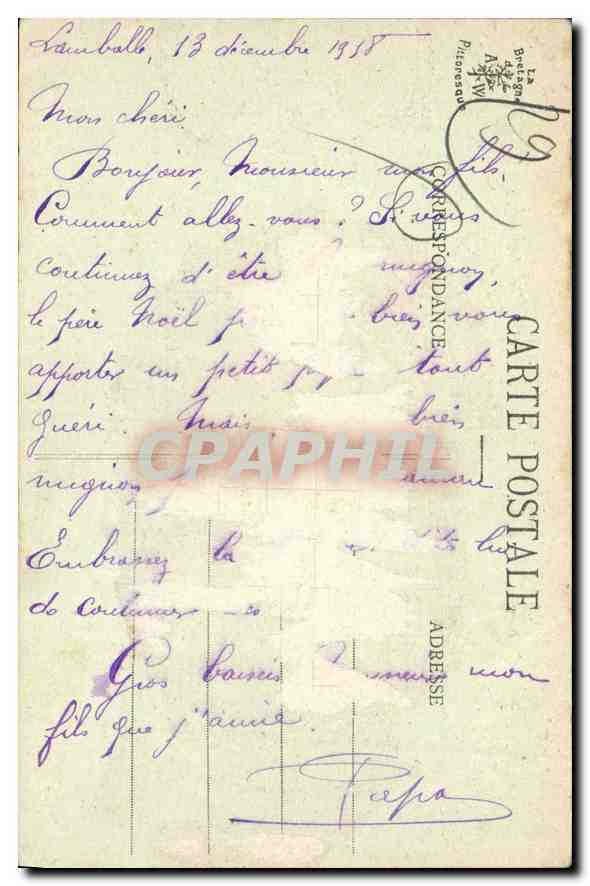 Lamballe, 13 décembre 1918
Mon chéri
Bonjour, Monsieur mon fils.
Comment allez-vous ? Si vous
continuez d'être mignon,
le père Noël bien vous
apporter un petit tout
guéri. Mais bien
mignon
Embrassez la
de continuer
Gros baisers Monsieur mon
fils que j'aime.
Papa
29
La
Bretagne
Pittoresque
A W
CORRESPONDANCE
CARTE POSTALE
ADRESSE
CPAPHIL